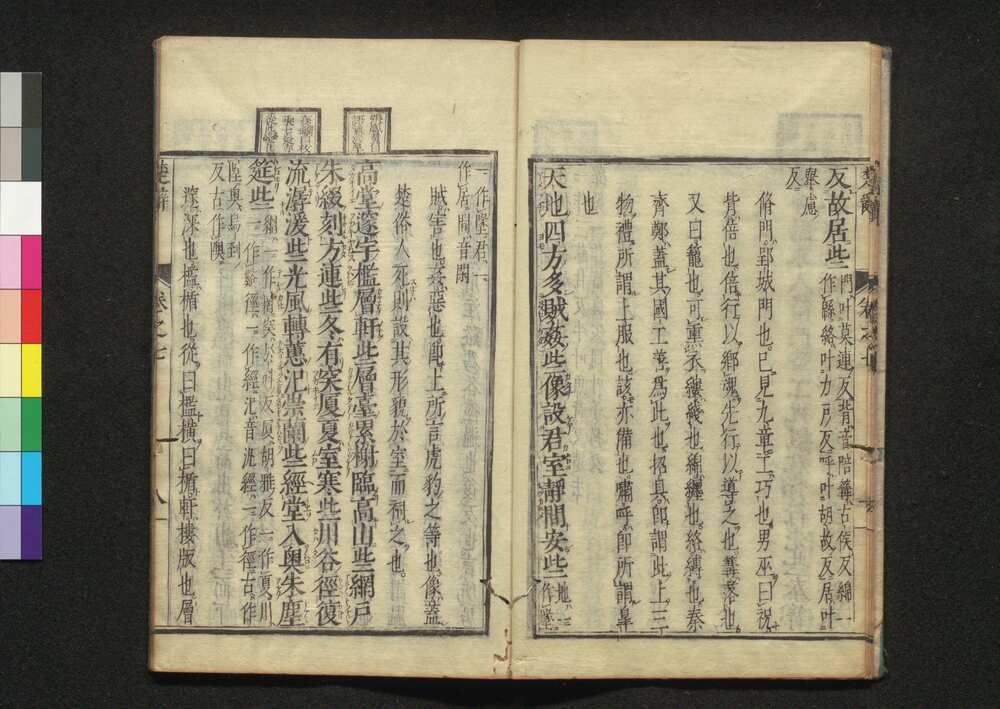 楚辭
卷之七
反故居些門叶莫連反背音陪篝古侯反綿一作緜絡叶力戶反呼叶胡故反居叶舉慮反
脩門郢城門也已見九章工巧也男巫曰祝
背倍也倍行以鄉魂先行以導之也篝落也
又曰籠也可熏衣縷綫也綿纏也絡縛也秦
齊鄭蓋其國工善為此也招具即謂此上三
物禮所謂上服也該亦備也嘯呼即所謂皐
也
天地四方多賊姦些像設君室靜閒安些一作墬
地一作墬君一作居閒音閑
賊害也姦惡也卽上所言虎豹之等也像蓋
楚俗人死則設其形貌於室而祠之也
高堂邃宇檻層軒些層臺累榭臨高山些網戶
朱綴刻方連些冬有突厦夏室寒些川谷徑復
流潺湲些光風轉蕙氾崇蘭些經堂入奧朱塵
筵些
邃深也檻楯也從曰檻橫曰楯軒樓版也層
楚辭
卷之七
八